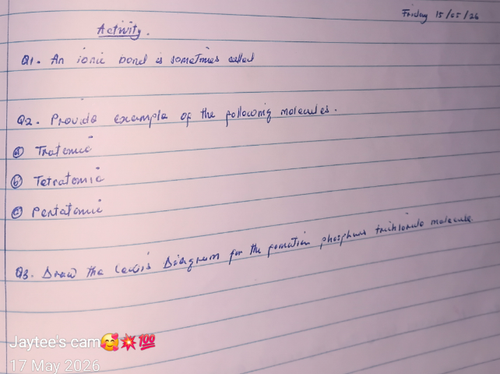 Friday 15/05/26
Activity.
Q1. An ionic bond is sometimes called
Q2. Provide example of the following molecules.
a Triatomic
b Tetratomic
c Pentatomic
Q3. Draw the Lewis Diagram for the formation phosphorus trichloride molecule
Jaytee's cam🥰💥💯
17 May 2026